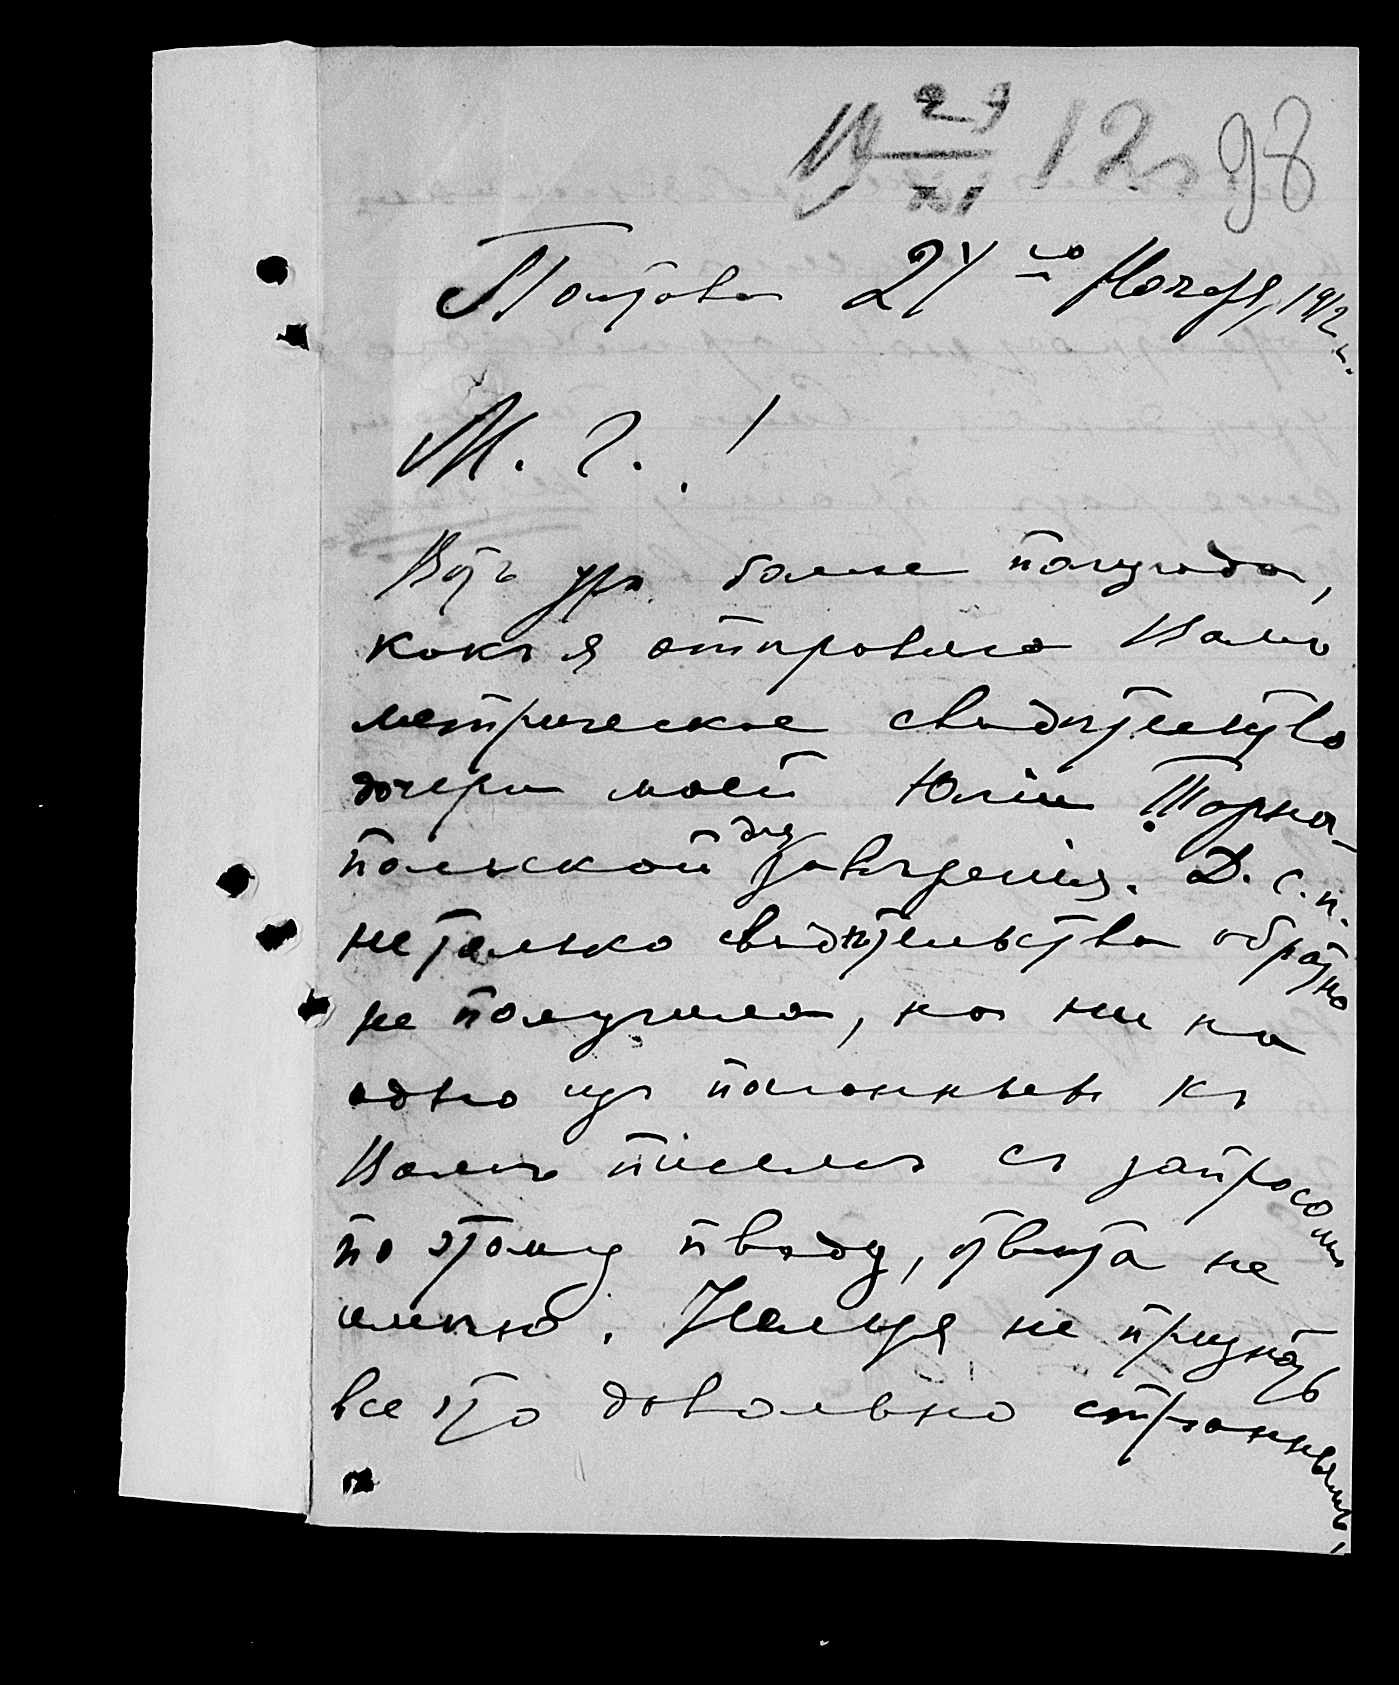 29
XI 12 г. 98
Полтава 24 го Ноября 1912 г.
М. Г.!
Вотъ ужъ более полугода,
какъ я отправила Вамъ
метрическое свидѣтельство
дочери моей Юліи Тарно-
польской для завѣренія. Д. с. п.
не только свидѣтельства обратно
не получила, но ни на
одно изъ посланныхъ къ
Вамъ писемъ съ запросомъ
по этому поводу, отвѣта не
имѣю. Нельзя не признать
все это довольно страннымъ,